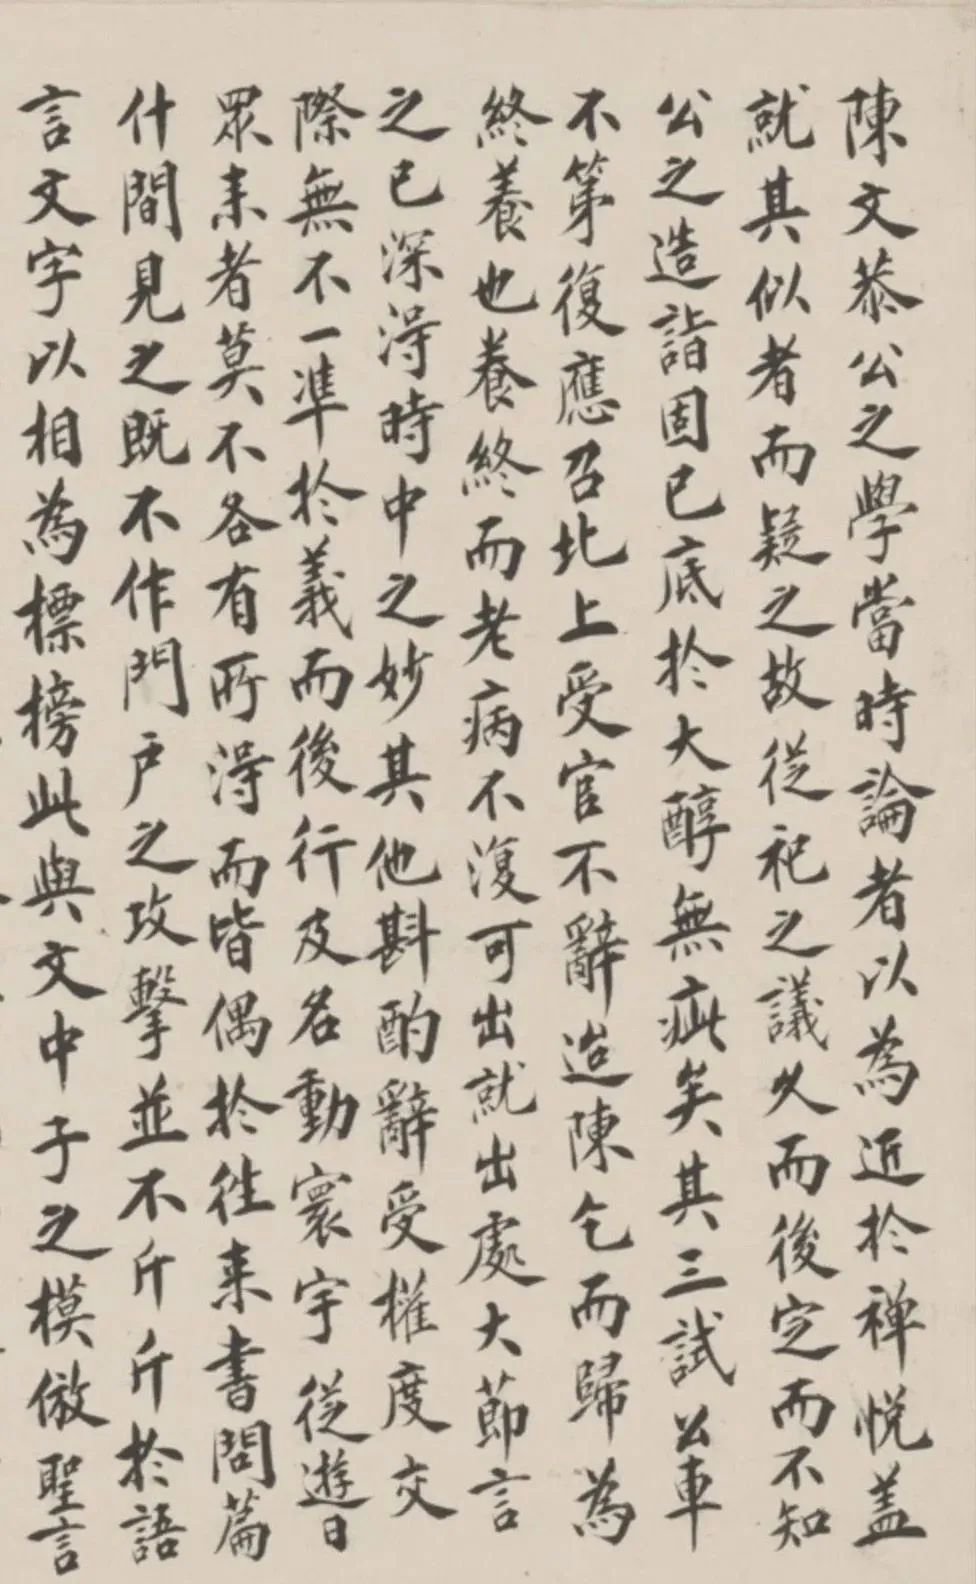 陳文恭公之學當時論者以為近於禅悅盖
就其似者而疑之故從祀之議久而後定而不知
公之造詣固已底於大醇無疵矣其三試公車
不第復應召北上受官不辭迨陳乞而歸為
終養也養終而老病不復可出就出處大節言
之已深淂時中之妙其他斟酌辭受權度交
際無不一準於義而後行及名動寰宇從遊日
眾来者莫不各有所淂而皆偶於往来書問篇
什間見之既不作門户之攻擊並不斤斤於語
言文字以相為標榜此與文中子之模倣聖言